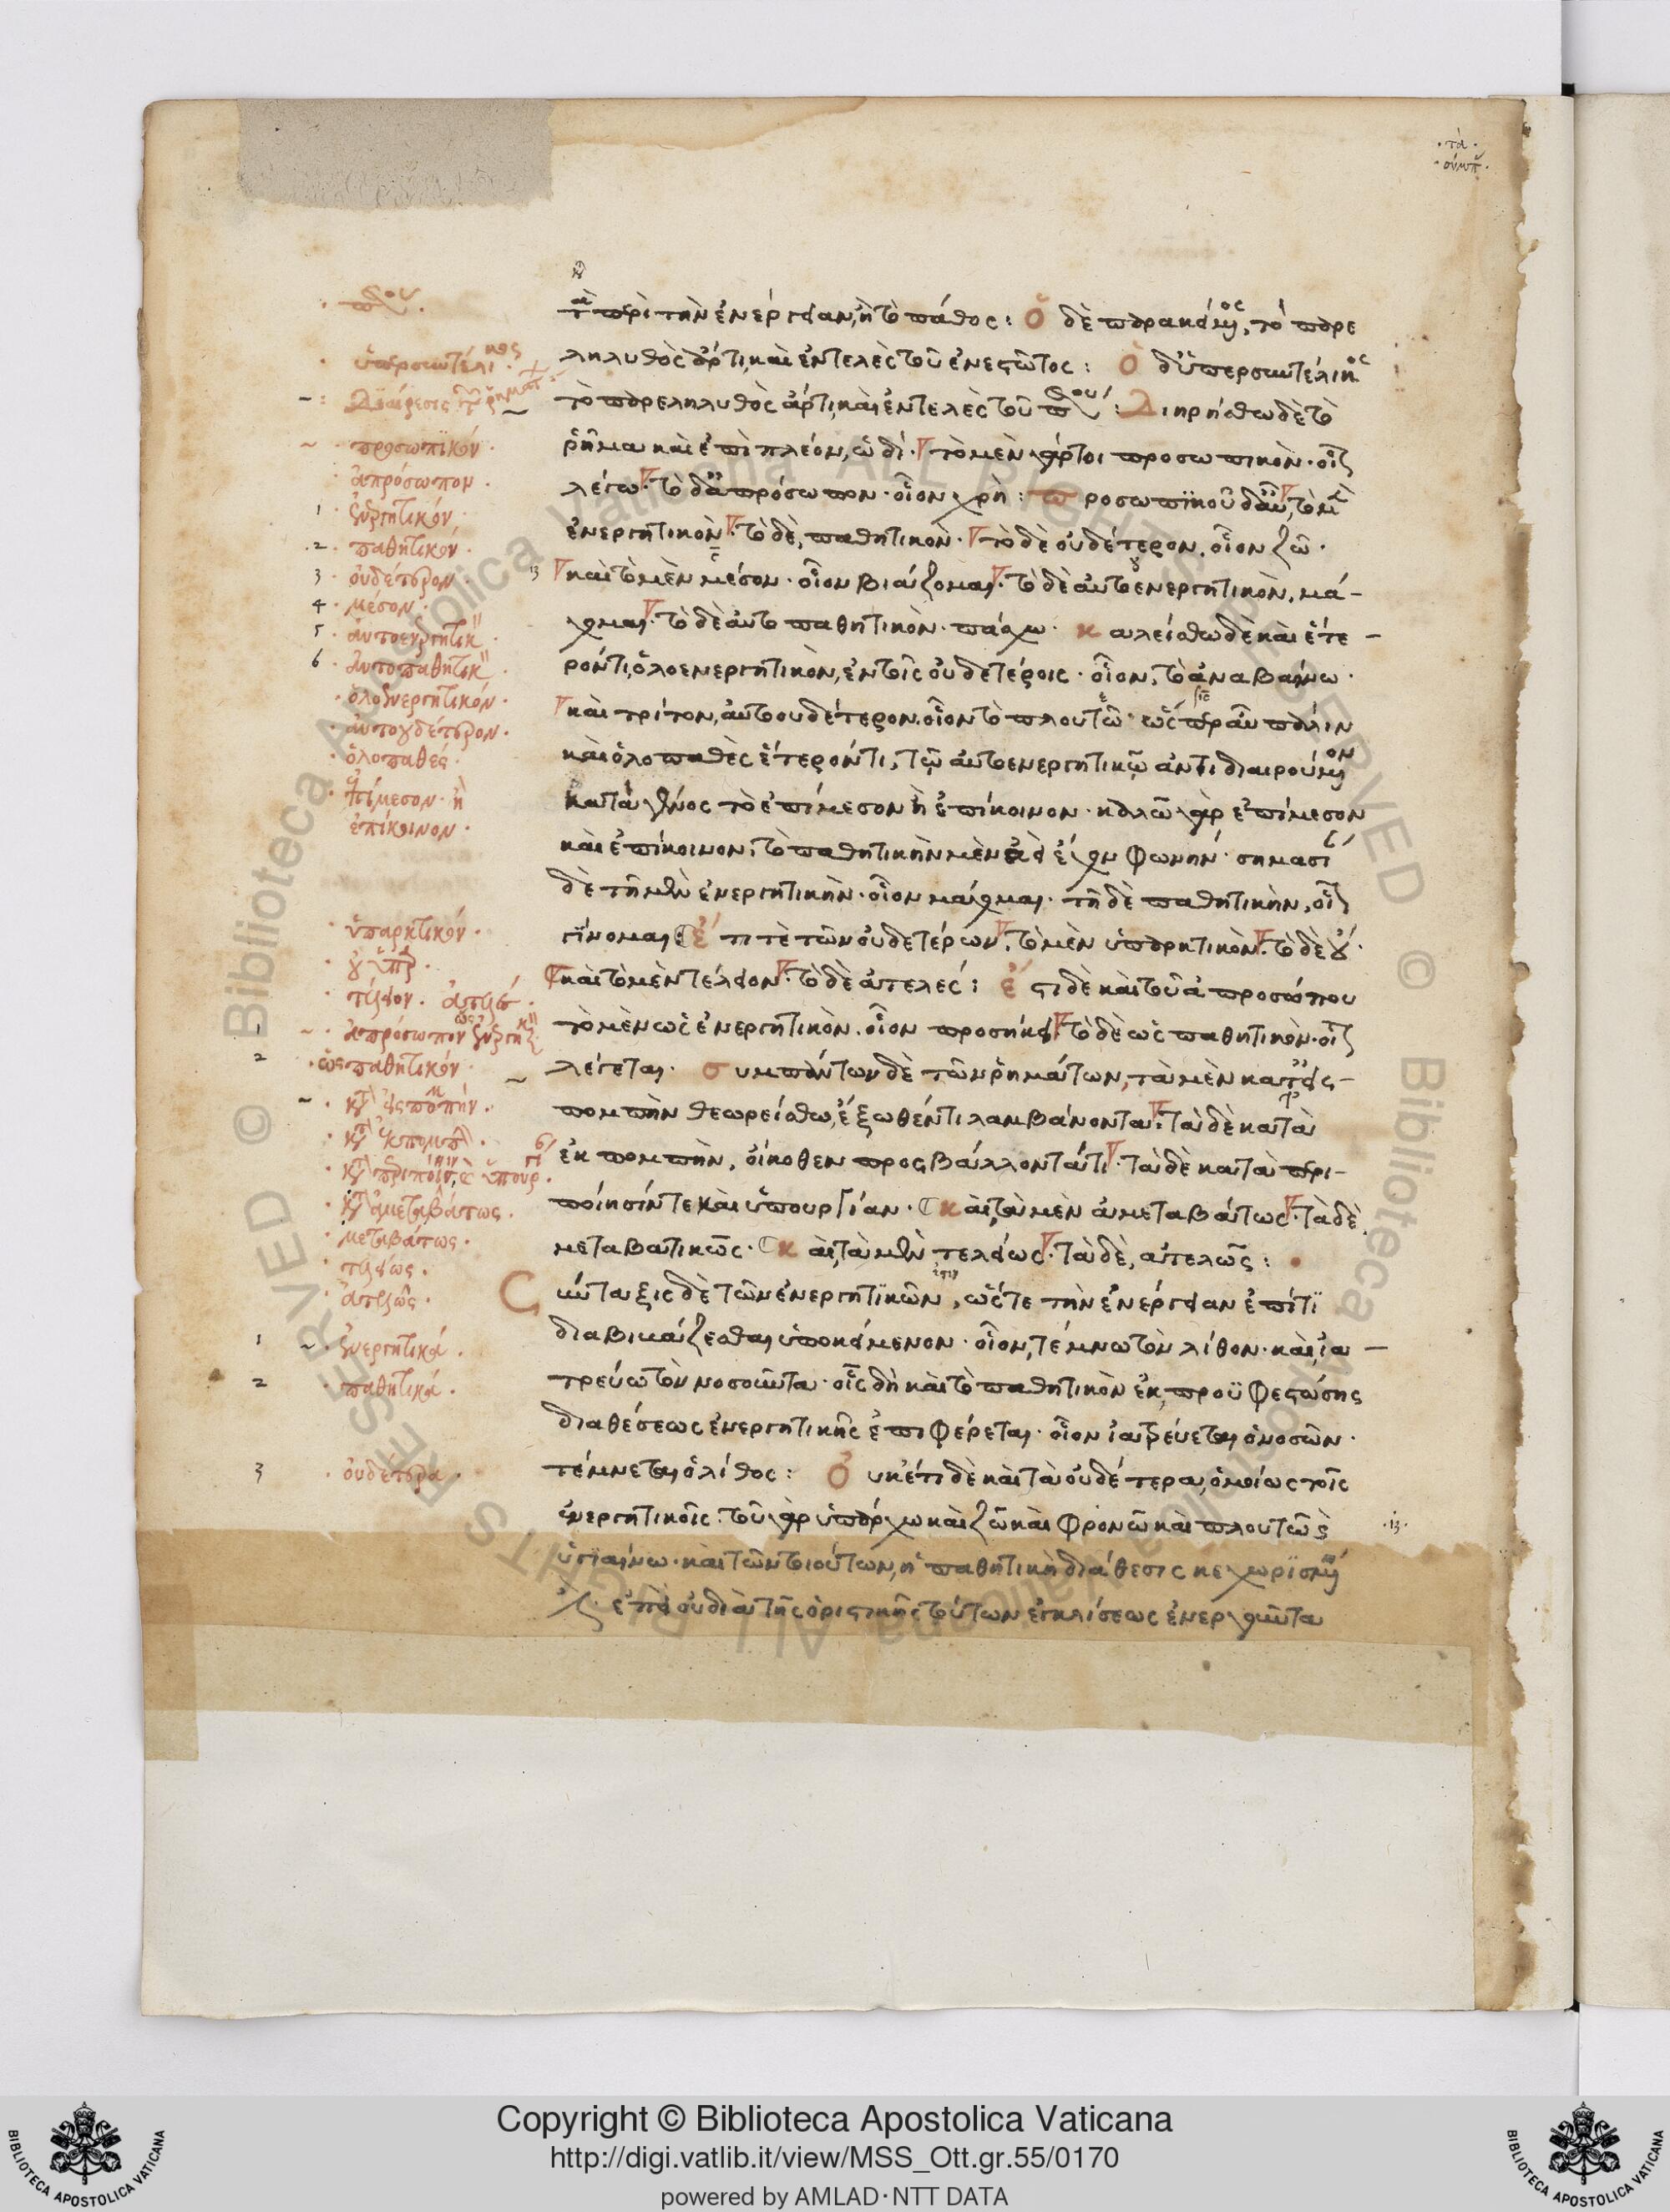 · τὰ ·
τὰ περὶ τὴν ἐνέργειαν, ἢ τὸ πάθος : Ὁ δὲ παρακείμενος, τὸ παρε
ληλυθὸς ἄρτι καὶ ἐντελὲς τοῦ ἐνεστῶτος : Ὁ δ' ὑπερσυντέλικος
τὸ παρεληλυθὸς ἄρτι, καὶ ἐντελὲς τοῦ : Διηρήσθω δὲ τὸ
ῥῆμα καὶ ἐπὶ πλέον, ὡδί · τὸ μὲν γάρ τοι προσωπικὸν · οἷον
λέγω · τὸ δ' ἀπρόσωπον · οἷον χρὴ : προσωπϊκοῦ δ' αὖ, τὸ μὲν
ἐνεργητικὸν · τὸ δὲ, παθητικὸν · τὸ δὲ οὐδέτερον, οἷον ζῶ ·
καὶ τὸ μὲν μέσον · οἷον βιάζομαι · τὸ δὲ αὐτοενεργητικὸν, μά-
χομαι · τὸ δὲ αὐτοπαθητικὸν · πάσχω · καλείσθω δὲ καὶ ἕτε-
ρόν τι, ὁλοενεργητικὸν, ἐν τοῖς οὐδετέροις · οἷον, τὸ ἀναβαίνω ·
καὶ τρίτον, αὐτουδέτερον. οἷον τὸ πλουτῶ · ὥσπερ αὖ πάλιν
καὶ ὁλοπαθὲς ἕτερόν τι, τῷ αὐτενεργητικῷ ἀντιδιαιρούμενον
κατὰ γένος τὸ ἐπίμεσον ἢ ἐπίκοινον · καλῶ γὰρ ἐπίμεσον
καὶ ἐπίκοινον, τὸ παθητικὴν μὲν ἀεὶ ἔχον φωνήν · σημασί
δὲ πῆ μὲν ἐνεργητικὴν · οἷον μάχομαι · πῆ δὲ παθητικὴν, οἷον
γίνομαι · ἔτι τὲ τῶν οὐδετέρων, τὸ μὲν ὑπαρκτικὸν · τὸ δὲ οὔ ·
καὶ τὸ μὲν τέλειον · τὸ δὲ ἀτελές : ἔστι δὲ καὶ τοῦ ἀπροσώπου
τὸ μὲν ὡς ἐνεργητικὸν. οἷον προσήκει · τὸ δὲ ὡς παθητικὸν · οἷον
λέγεται · συμπάντων δὲ τῶν ῥημάτων, τὰ μὲν κατ' εἰς-
πομπὴν θεωρείσθω, ἔξωθέν τι λαμβάνοντα · τὰ δὲ κατὰ
ἐκπομπὴν, οἴκοθεν προσβάλλοντά τι · τὰ δὲ κατὰ περι-
ποίησίν τε καὶ ὑπουργίαν · καὶ, τὰ μὲν ἀμεταβάτως · τὰ δὲ
μεταβατικῶς · καὶ, τὰ μὲν τελείως · τὰ δὲ, ἀτελῶς :
Σύνταξις δὲ τῶν ἐνεργητικῶν, ὥστε τὴν ἐνέργειαν ἐπί τϊ
διαβιβάζεσθαι ὑποκείμενον · οἷον, τέμνω τὸν λίθον · καὶ, ἰα-
τρεύω τὸν νοσοῦντα · οἷς δὴ καὶ τὸ παθητικὸν ἐκ προϋφεστώσης
διαθέσεως ἐνεργητικῆς ἐπιφέρεται · οἷον ἰατρεύεται ὁ νοσῶν ·
τέμνεται ὁ λίθος : Οὐκέτι δὲ καὶ τὰ οὐδέτερα, ὁμοίως τοῖς
ἐνεργητικοῖς · τοῦ γὰρ ὑπάρχω καὶ ζῶ καὶ φρονῶ καὶ πλουτῶ καὶ
ὑγϊαίνω · καὶ τῶν τοιούτων, ἡ παθητικὴ διάθεσις κεχώρϊσται
ἐπεὶ οὐ διὰ τῆς ὁριστικῆς τούτων ἐγκλίσεως ἐνεργοῦντα
· ὑπερσυντέλικος ·
· Διαίρεσις τοῦ ῥήματος
· προσωπϊκόν ·
· ἀπρόσωπον ·
1 ἐνεργητικόν ·
2 · παθητικόν ·
3 · οὐδέτερον ·
4 · μέσον ·
5 · αὐτοενεργητικ ·
6 · αὐτοπαθητικ ·
· ὁλοενεργητικόν ·
· αὐτουδέτερον ·
· ὁλοπαθές ·
· ἐπίμεσον · ἢ
ἐπίκοινον ·
· ὑπαρκτικόν ·
· τέλειον · ἀτελές ·
1 · ἀπρόσωπον ὡς ἐνεργητικ
2 · ὡς παθητικόν ·
· κατ' εἰσπομπήν ·
· κατ' ἐκπομπ ·
· ἀμεταβάτως ·
· μεταβάτως ·
· τελείως ·
· ἀτελῶς ·
1 · ἐνεργητικά ·
2 · παθητικά ·
3 · οὐδέτερα ·
· 13 ·
© Biblioteca Apostolica Vaticana ALL RIGHTS RESERVED
Copyright © Biblioteca Apostolica Vaticana
http://digi.vatlib.it/view/MSS_Ott.gr.55/0170
powered by AMLAD·NTT DATA
BIBLIOTECA APOSTOLICA VATICANA
BIBLIOTECA APOSTOLICA VATICANA